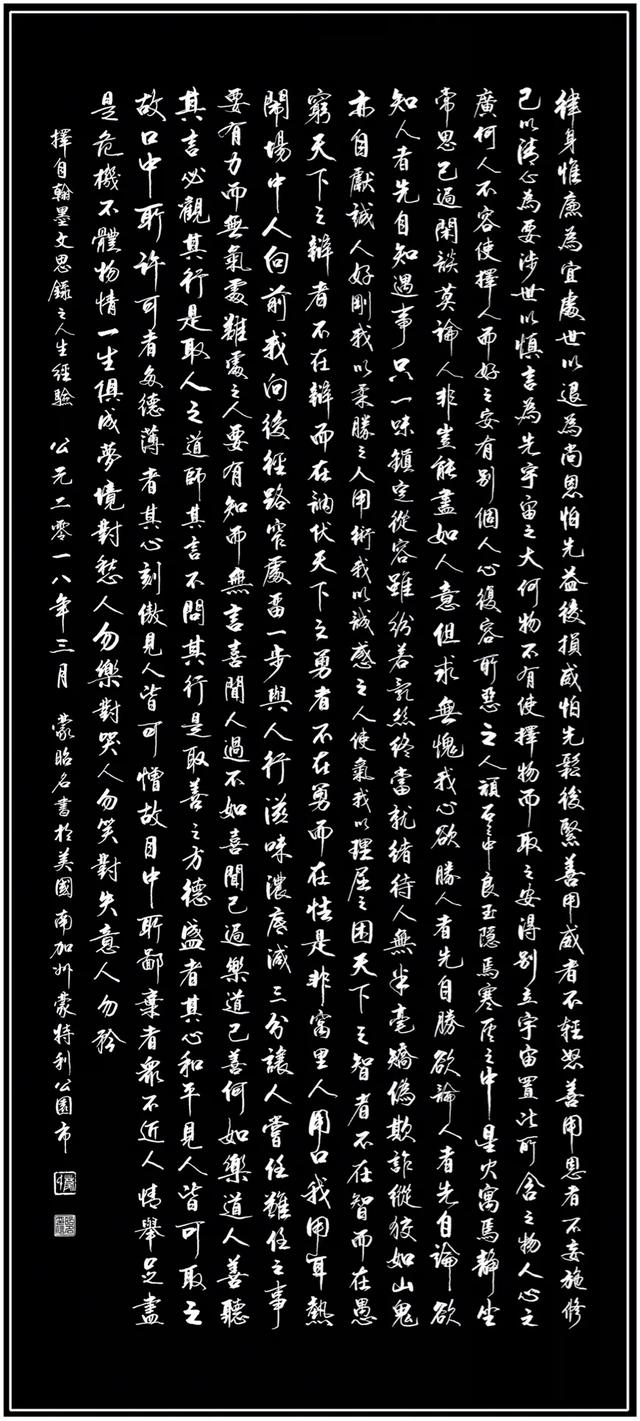 律身惟廉為宜處世以退為尚恩怕先益後損威怕先鬆後緊善用威者不輕怒善用恩者不妄施修
己以清心為要涉世以慎言為先宇宙之大何物不有使擇物而取之安得別立宇宙置此所舍之物人心之
廣何人不容使擇人而好之安有別個人心復容所惡之人頑石之中良玉隱焉寒灰之中星火寓焉靜坐
常思己過閑談莫論人非豈能盡如人意但求無愧我心欲勝人者先自勝欲論人者先自論欲
知人者先自知遇事只一味鎮定從容雖紛若亂絲終當就緒待人無半毫矯偽欺詐縱狡如山鬼
亦自獻誠人好剛我以柔勝之人用術我以誠感之人使氣我以理屈之困天下之智者不在智而在愚
窮天下之辯者不在辯而在訥伏天下之勇者不在勇而在怯是非窩里人用口我用耳熱
鬧場中人向前我向後徑路窄處留一步與人行滋味濃處減三分讓人嘗任難任之事
要有力而無氣處難處之人要有知而無言喜聞人過不如喜聞己過樂道己善何如樂道人善聽
其言必觀其行是取人之道師其言不問其行是取善之方德盛者其心和平見人皆可取之
故口中所許可者多德薄者其心刻傲見人皆可憎故目中所鄙棄者眾不近人情舉足盡
是危機不體物情一生俱成夢境對愁人勿樂對哭人勿笑對失意人勿矜
擇自翰墨文思錄之人生經驗 公元二零一八年三月 蒙昭名書於美國南加州蒙特利公園市